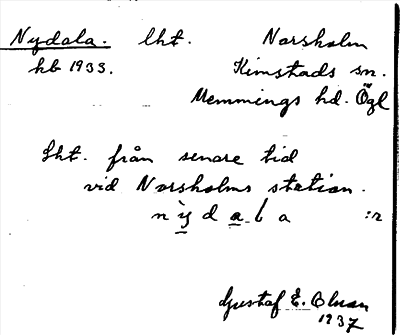 Nydala. lht. Norsholm
kb 1933. Kimstads sn.
Memmings hd. Ögl
Lht. från senare tid
vid Norsholms station.
nydala :r
Gustaf E. Olman
1937